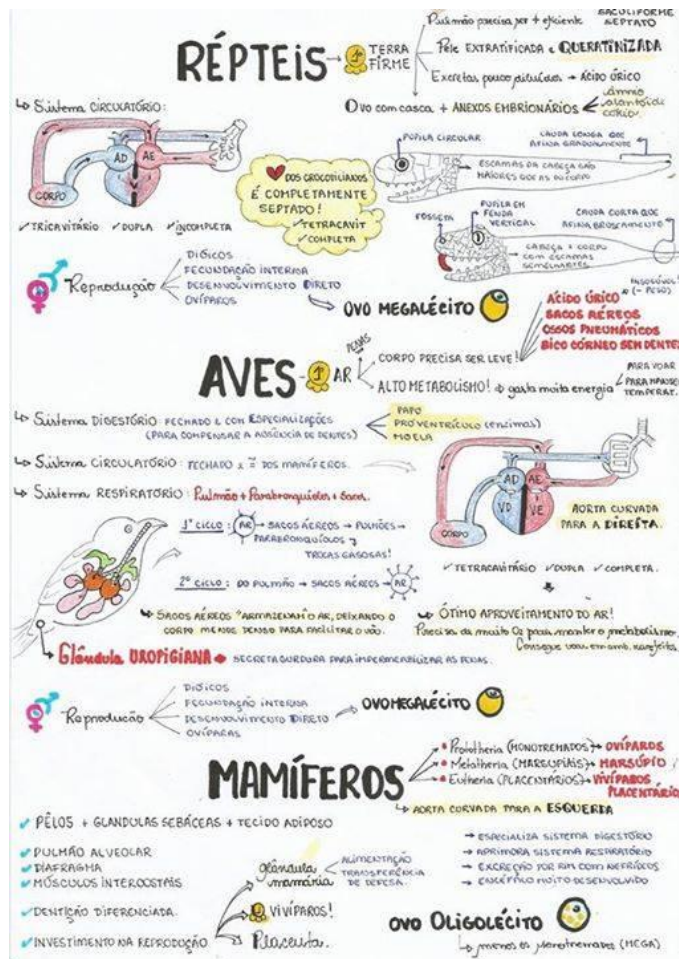 SACULIFORME
Pulmão precisa ser + eficiente SEPTATO
RÉPTEIS → 1º TERRA FIRME
Pele EXTRATIFICADA e QUERATINIZADA
Excretas pouco diluídos → ÁCIDO ÚRICO
Ovo com casca + ANEXOS EMBRIONÁRIOS
âmnio
alantoide
cório
↳ Sistema CIRCULATÓRIO:
AD AE
CORPO
✓TRICAVITÁRIO ✓DUPLA ✓INCOMPLETA
DOS CROCODILIANOS
É COMPLETAMENTE
SEPTADO!
✓TETRACAVIT
✓COMPLETA
PUPILA CIRCULAR
CAUDA LONGA QUE
AFINA GRADUALMENTE
ESCAMAS DA CABEÇA SÃO
MAIORES QUE AS DO CORPO
FOSSETA
PUPILA EM
FENDA
VERTICAL
CAUDA CURTA QUE
AFINA BRUSCAMENTE
CABEÇA E CORPO
COM ESCAMAS
SEMELHANTES
Reprodução
DIÓICOS
FECUNDAÇÃO INTERNA
DESENVOLVIMENTO DIRETO
OVÍPAROS
OVO MEGALÉCITO
INSOLÚVEL
(- PESO)
ÁCIDO ÚRICO
SACOS AÉREOS
OSSOS PNEUMÁTICOS
BICO CÓRNEO SEM DENTES
AVES - 1º AR
PENAS
CORPO PRECISA SER LEVE!
ALTO METABOLISMO! → gasta muita energia
PARA VOAR
PARA MANTER
TEMPERAT.
↳ Sistema DIGESTÓRIO: FECHADO E COM ESPECIALIZAÇÕES
(PARA COMPENSAR A AUSÊNCIA DE DENTES)
PAPO
PROVENTRÍCULO (enzimas)
MOELA
↳ Sistema CIRCULATÓRIO: FECHADO E = DOS MAMÍFEROS.
↳ Sistema RESPIRATÓRIO: Pulmão + Parabronquíolos + Sacos.
AD AE
VD VE
CORPO
AORTA CURVADA
PARA A DIREITA.
✓TETRACAVITÁRIO ✓DUPLA ✓COMPLETA.
1º CICLO: AR → SACOS AÉREOS → PULMÕES →
PARABRONQUÍOLOS
TROCAS GASOSAS!
2º CICLO: DO PULMÃO → SACOS AÉREOS → AR
↳ SACOS AÉREOS "ARMAZENAM" O AR, DEIXANDO O
CORPO MENOS DENSO PARA FACILITAR O VÔO.
↳ ÓTIMO APROVEITAMENTO DO AR!
Precisa de muito O2 para manter o metabolismo,
Consegue voar em amb. rarefeitos
Glândula UROPIGIANA → SECRETA GORDURA PARA IMPERMEABILIZAR AS PENAS.
Reprodução
DIÓICOS
FECUNDAÇÃO INTERNA
DESENVOLVIMENTO DIRETO
OVÍPARAS
OVO MEGALÉCITO
MAMÍFEROS
Prototheria (MONOTREMADOS) → OVÍPAROS
Metatheria (MARSUPIAIS) → MARSÚPIO
Eutheria (PLACENTÁRIOS) → VIVÍPAROS
PLACENTÁRIOS
↳ AORTA CURVADA PARA A ESQUERDA
✓ PÊLOS + GLANDULAS SEBÁCEAS + TECIDO ADIPOSO
✓ PULMÃO ALVEOLAR
✓ DIAFRAGMA
✓ MÚSCULOS INTERCOSTAIS
✓ DENTIÇÃO DIFERENCIADA.
✓ INVESTIMENTO NA REPRODUÇÃO
glândula
mamária
ALIMENTAÇÃO
TRANSFERÊNCIA
DE DEFESA.
VIVÍPAROS!
Placenta.
→ ESPECIALIZA SISTEMA DIGESTÓRIO
→ APRIMORA SISTEMA RESPIRATÓRIO
→ EXCREÇÃO POR RIM COM NEFRÍDEOS
→ ENCÉFALO MUITO DESENVOLVIDO
OVO OLIGOLÉCITO
↳ menos os Monotremados (MEGA)